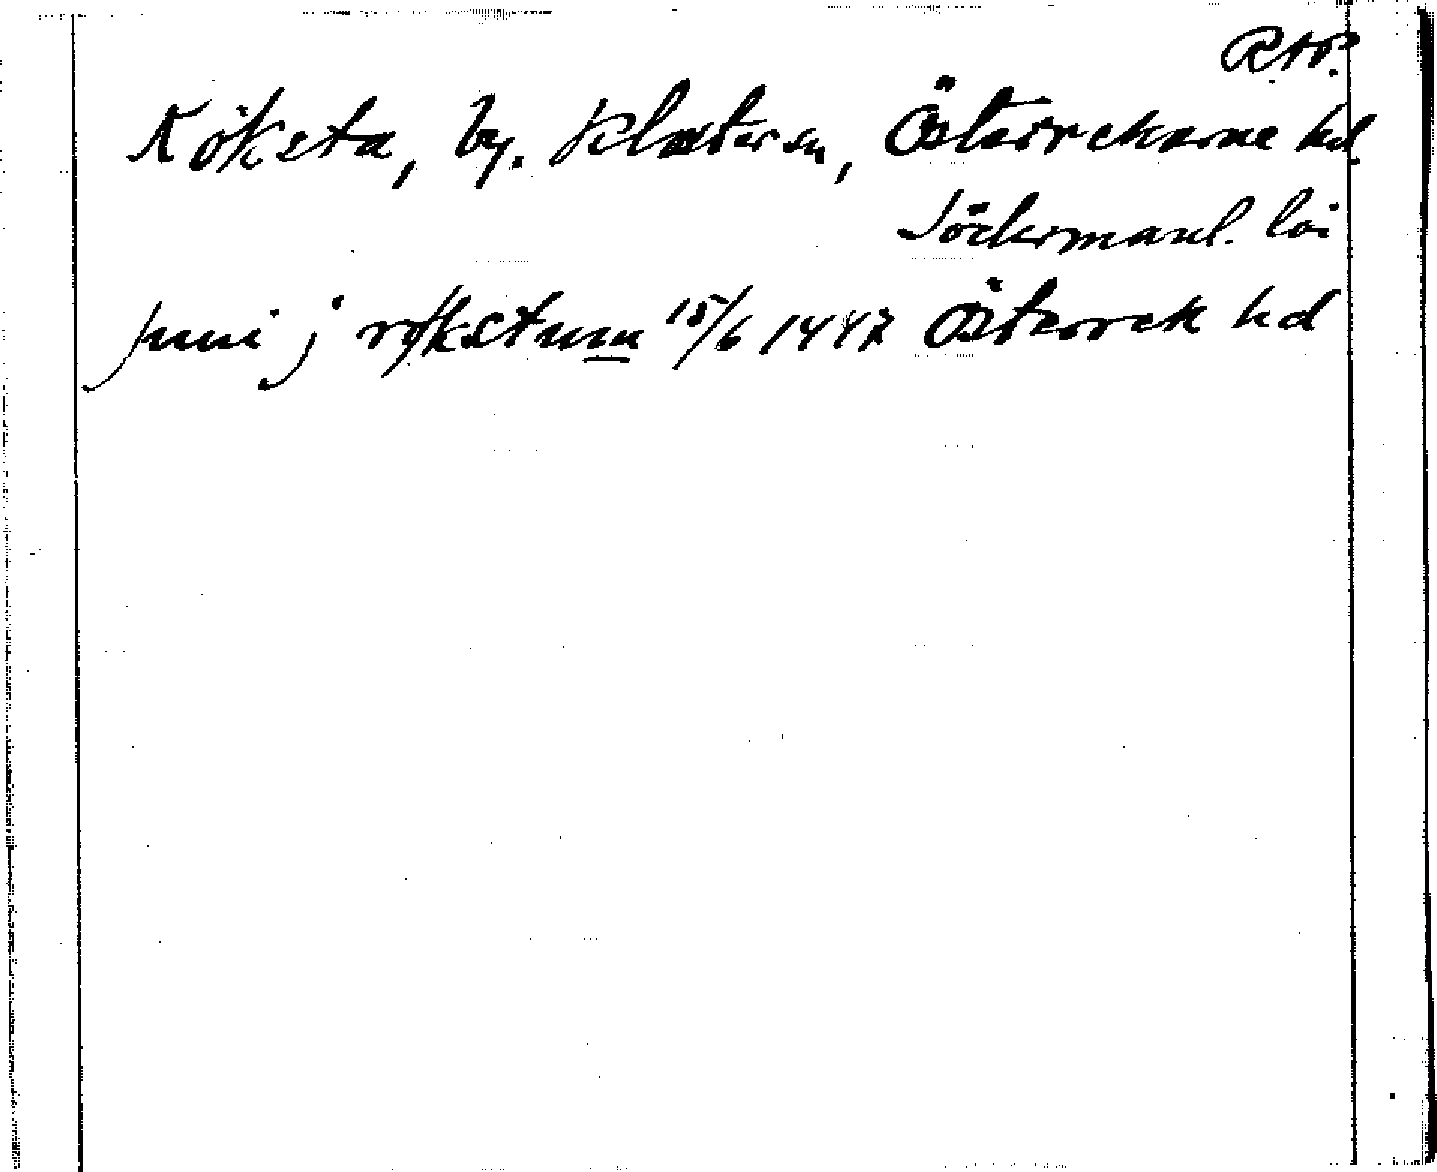 RAP.
Röksta, by. Klosters sn, Österrekarne hd.
Södermanl. län
juni j røkstum 15/6 1447 Österrek hd